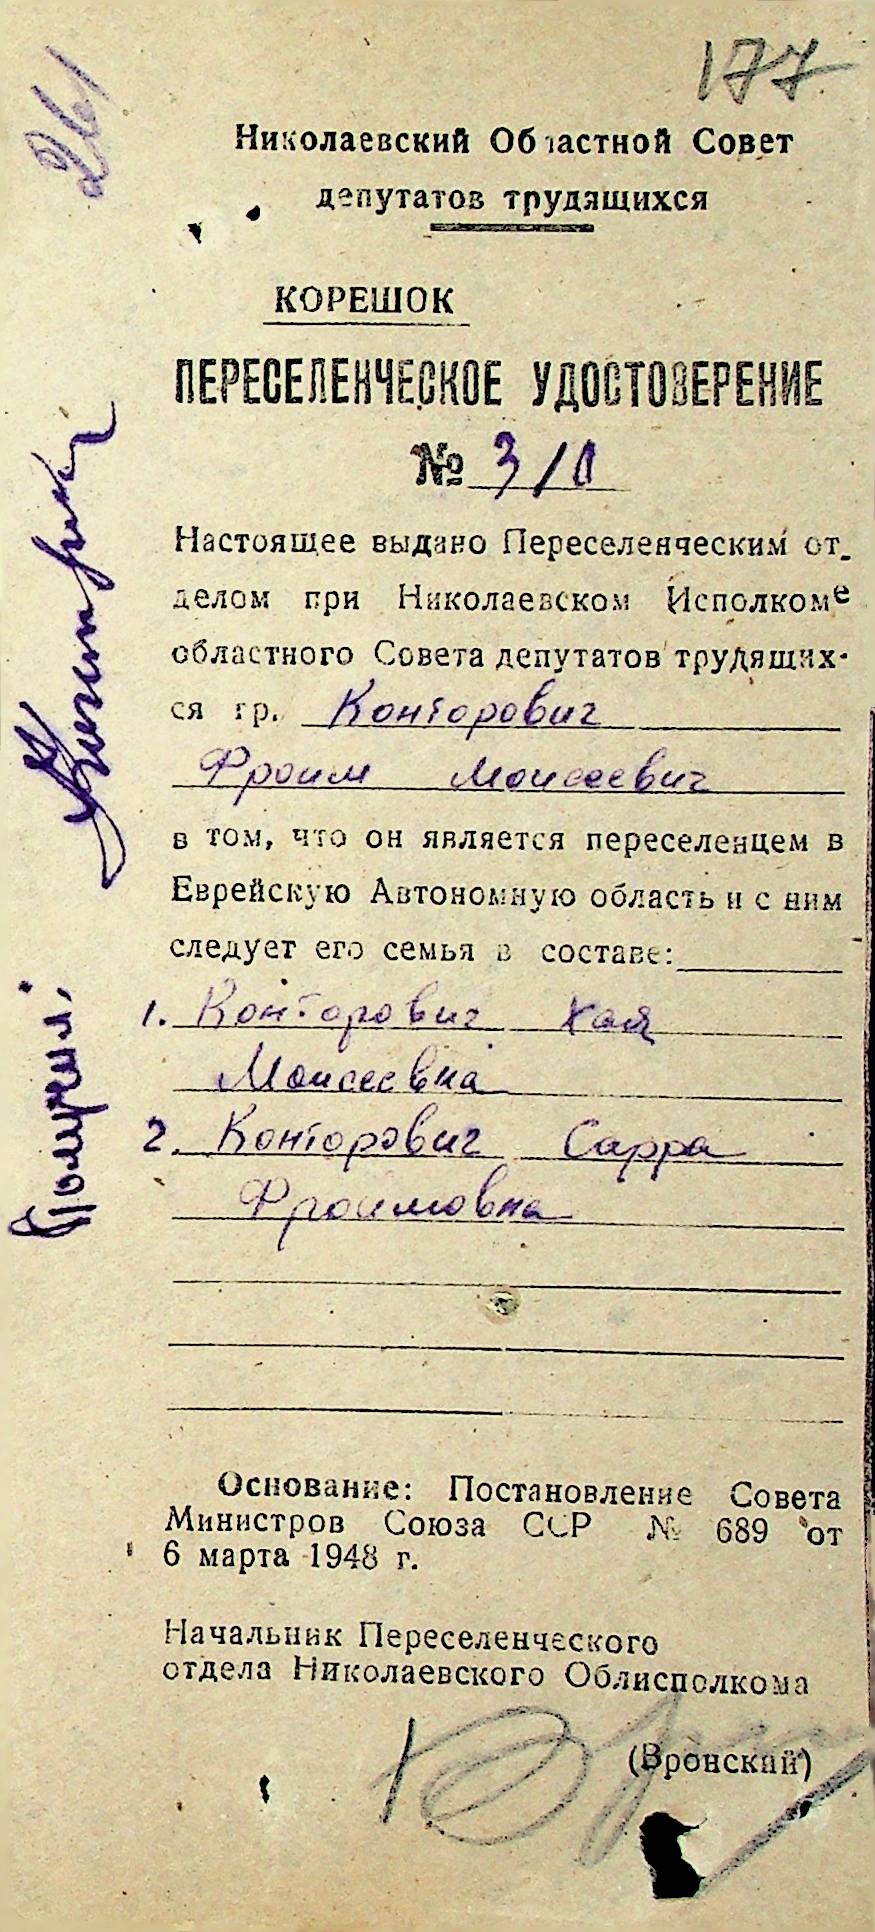 177
261
Николаевский Областной Совет
депутатов трудящихся
КОРЕШОК
ПЕРЕСЕЛЕНЧЕСКОЕ УДОСТОВЕРЕНИЕ
№ 310
Настоящее выдано Переселенческим от-
делом при Николаевском Исполкоме
областного Совета депутатов трудящих-
ся гр. Конторович
Фроим Моисеевич
в том, что он является переселенцем в
Еврейскую Автономную область и с ним
следует его семья в составе:
1. Конторович Хая
Моисеевна
2. Конторович Сарра
Фроимовна
Основание: Постановление Совета
Министров Союза ССР № 689 от
6 марта 1948 г.
Начальник Переселенческого
отдела Николаевского Облисполкома
(Вронский)
Получил.